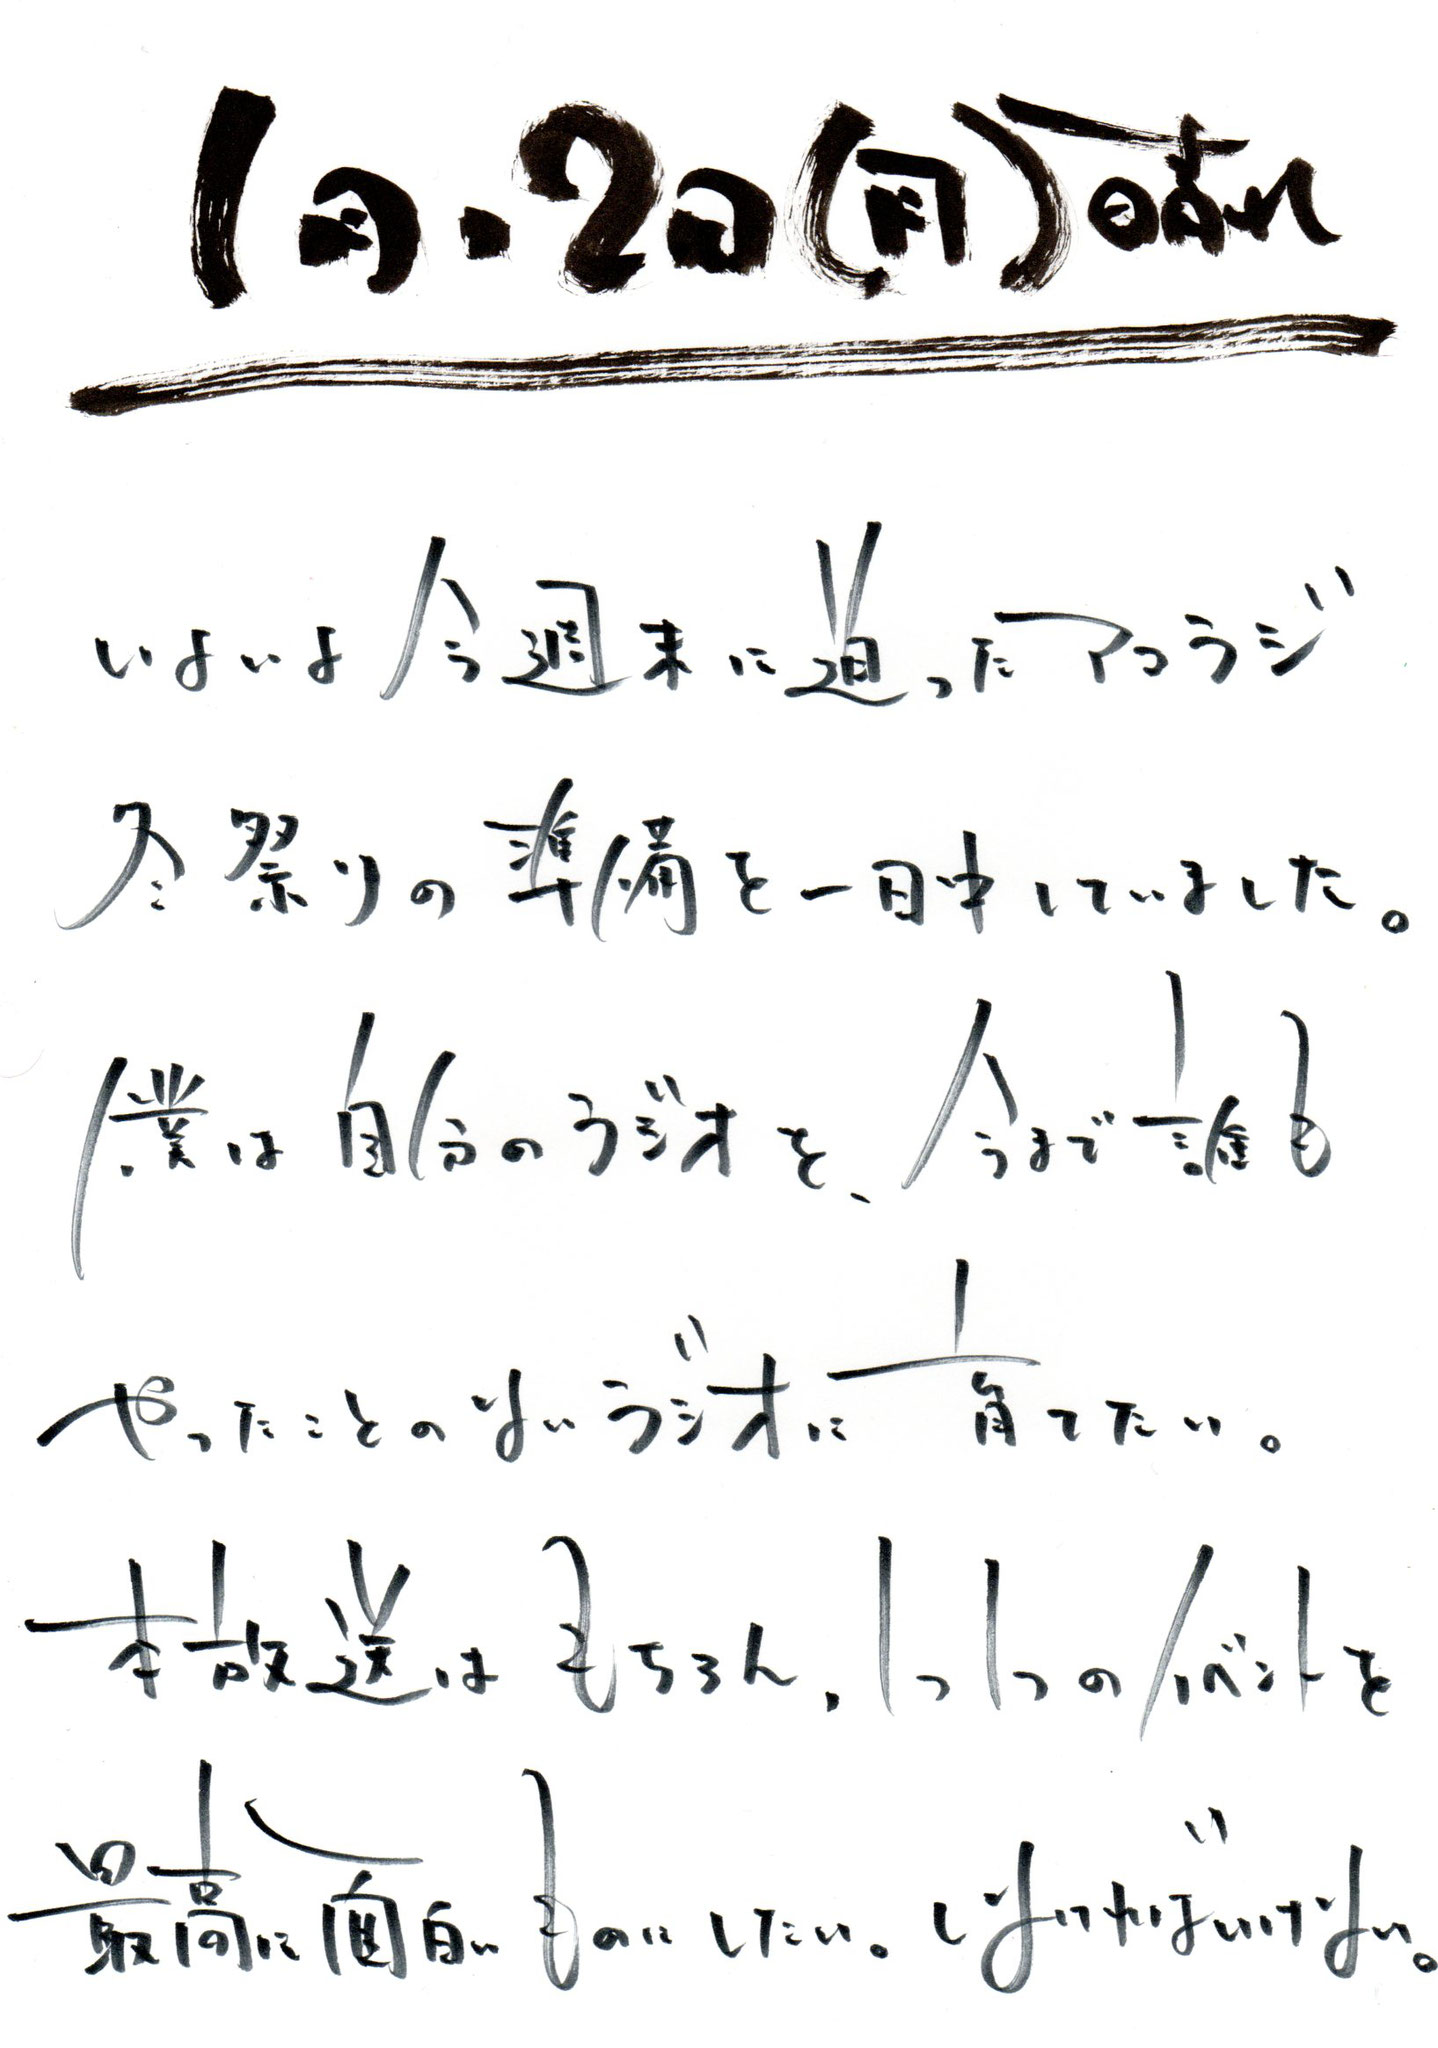 1月・2日(月)晴れ
いよいよ今週末に迫ったアコラジ
冬祭りの準備を一日中していました。
僕は自分のラジオを、今まで誰も
やったことのないラジオに育てたい。
本放送はもちろん、1つ1つのイベントを
最高に面白いものにしたい。しなければいけない。